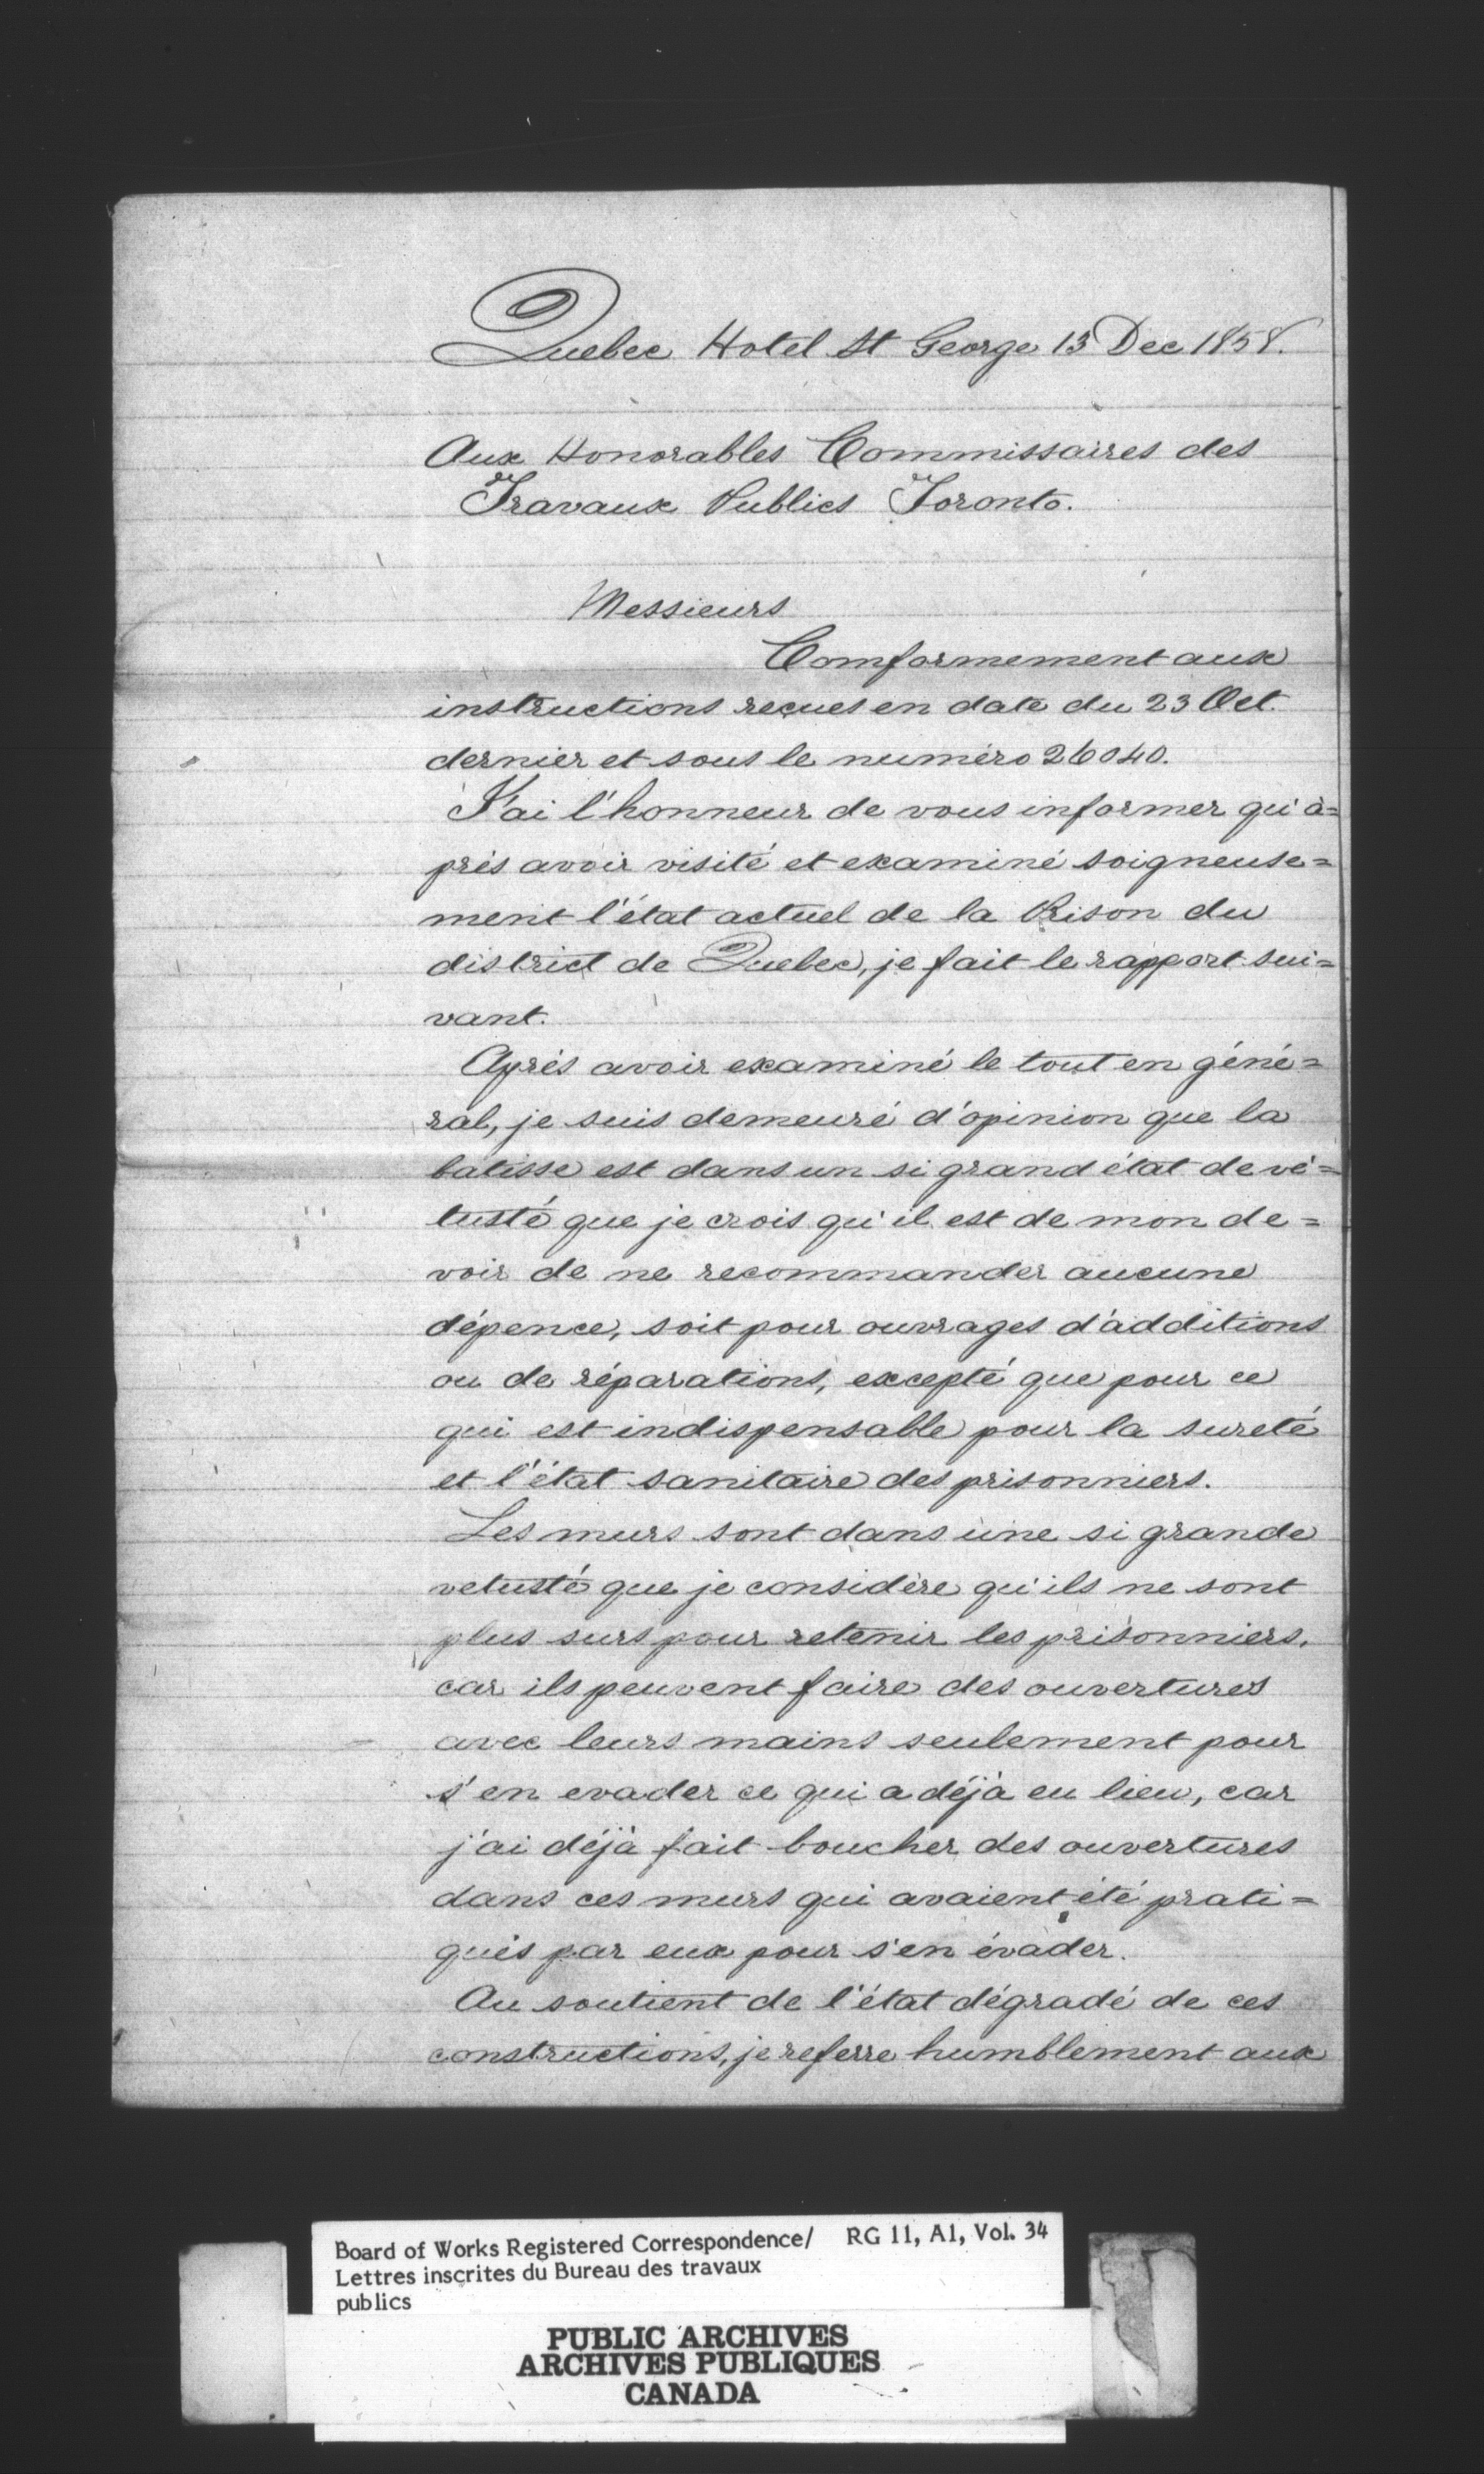 Quebec Hotel St George 13 Dec 1858.
Aux Honorables Commissaires des
Travaux Publics Toronto.
Messieurs
Comformement aux
instructions reçues en date du 23 Oct.
dernier et sous le numéro 26040.
J'ai l'honneur de vous informer qu'à=
prés avoir visité et examiné soigneuse=
ment l'état actuel de la Prison du
district de Quebec, je fait le rapport sui=
vant.
Aprés avoir examiné le tout en géné=
ral, je suis demeuré d'opinion que la
batisse est dans un si grand état de vé=
tusté que je crois qu'il est de mon de=
voir de ne recommander aucune
dépence, soit pour ouvrages d'additions
ou de réparations, excepté que pour ce
qui est indispensable pour la sureté
et l'état sanitaire des prisonniers.
Les murs sont dans une si grande
vetusté que je considère qu'ils ne sont
plus surs pour retenir les prisonniers,
car ils peuvent faire des ouvertures
avec leurs mains seulement pour
s'en evader ce qui a déjà eu lieu, car
j'ai déjà fait boucher des ouvertures
dans ces murs qui avaient été prati=
qués par eux pour s'en évader.
Au soutient de l'état dégradé de ces
constructions, je referre humblement aux
Board of Works Registered Correspondence/ RG 11, A1, Vol. 34
Lettres inscrites du Bureau des travaux
publics
PUBLIC ARCHIVES
ARCHIVES PUBLIQUES
CANADA